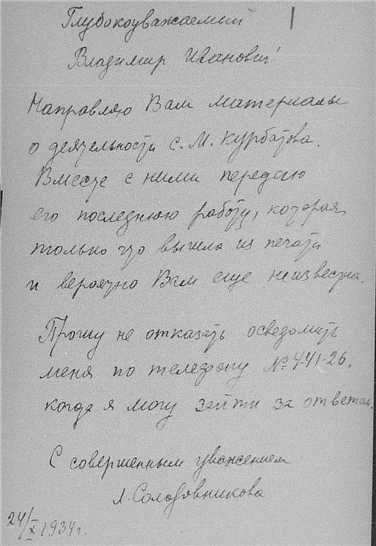 Глубокоуважаемый
Владимир Иванович!
Направляю Вам материалы
о деятельности С. М. Курбатова.
Вместе с ними передаю
его последнюю работу, которая
только что вышла из печати
и вероятно Вам еще неизвестна.
Прошу не отказать осведомить
меня по телефону № 4-41-26,
когда я могу зайти за ответом.
С совершенным уважением
Л. Солодовникова
24/X 1934г.